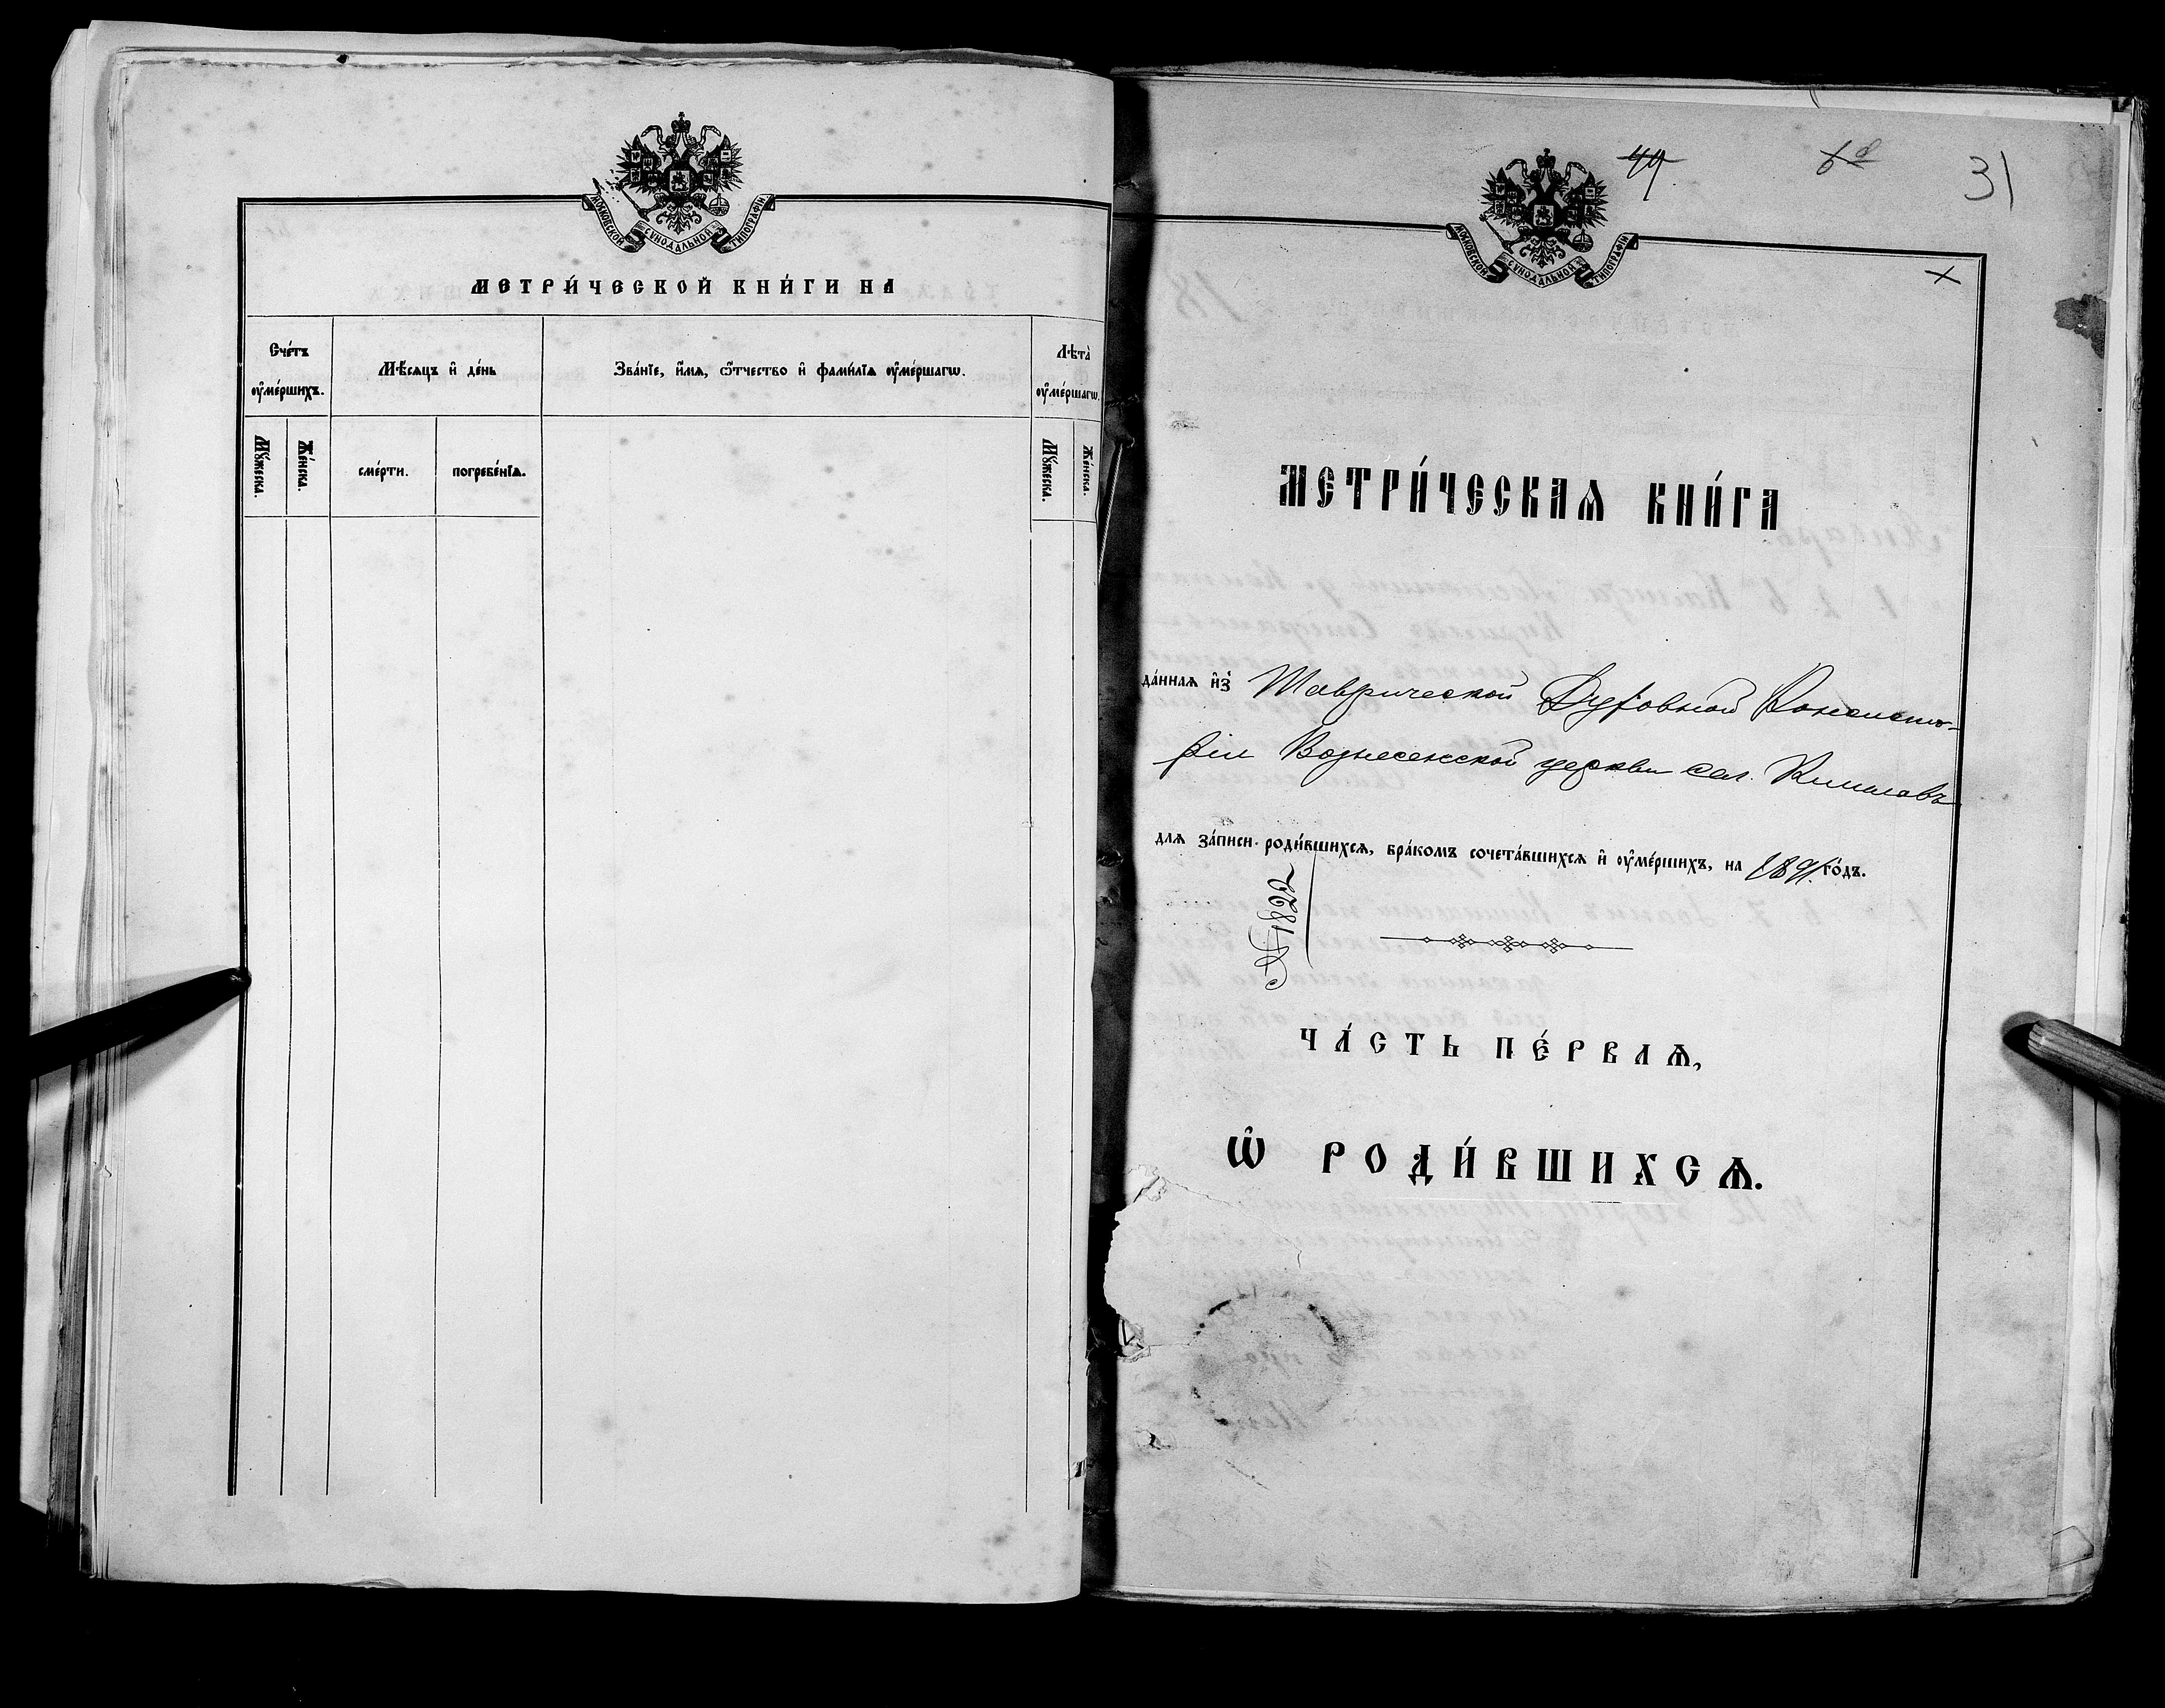 МОСКОВСКОЙ СѴНОДАЛЬНОЙ ТИПОГРАФІИ
МЕТРИ́ЧЕСКОЙ КНИ́ГИ НА
Сче́тъ оу҆ме́ршихъ.
Мѣ́сяцъ и҆ де́нь
Зва́нїе, и҆́мя, ѻ҆́тчество и҆ фами́лїя оу҆ме́ршагѡ.
Лѣта̀ оу҆ме́ршагѡ.
Му́жеска.
Же́нска.
сме́рти.
погребе́нїя.
Му́жеска.
Же́нска.
44.
31
МОСКОВСКОЙ СѴНОДАЛЬНОЙ ТИПОГРАФІИ
МЕТРИ́ЧЕСКАѦ КНИ́ГА
да́нная и҆зъ Таврической Духовной Консисто-
ріи Вознесенской церкви сел.
для за́писи роди́вшихся, бра́комъ сочета́вшихся и҆ оу҆ме́ршихъ, на 1891 го́дъ.
№ 1822
ЧА́СТЬ ПЕ́РВАѦ,
Ѡ҆ РОДИ́ВШИХСѦ.